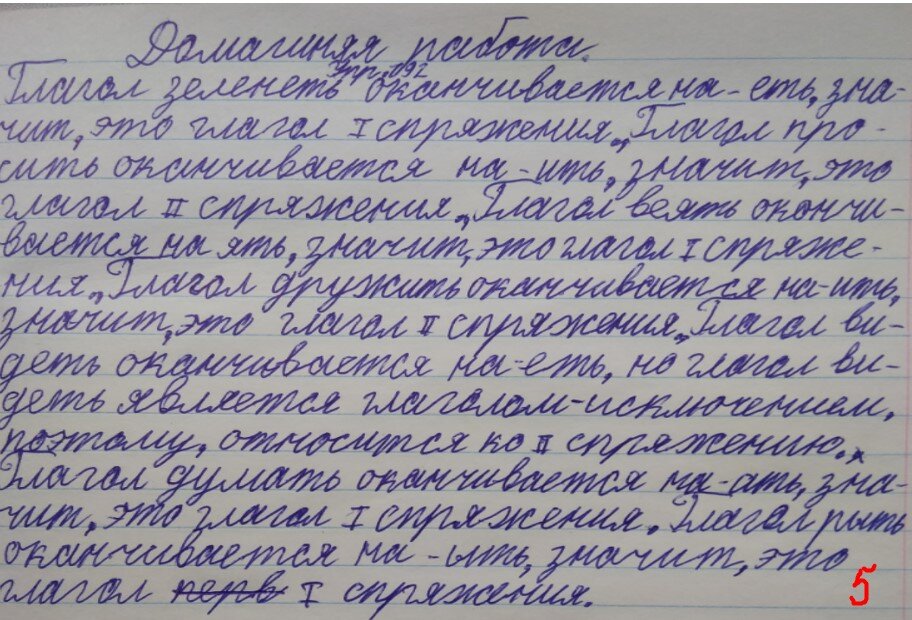 Домашняя работа.
Упр. 192
Глагол зеленеть оканчивается на -еть, зна-
чит, это глагол I спряжения. Глагол про-
сить оканчивается на -ить, значит, это
глагол II спряжения. Глагол веять оканчи-
вается на ять, значит, это глагол I спряже-
ния. Глагол дружить оканчивается на -ить,
значит, это глагол II спряжения. Глагол ви-
деть оканчивается на -еть, но глагол ви-
деть является глаголом-исключением,
поэтому, относится ко II спряжению.
Глагол думать оканчивается на -ать, зна-
чит, это глагол I спряжения. Глагол рыть
оканчивается на -ыть, значит, это
глагол перв I спряжения.
5